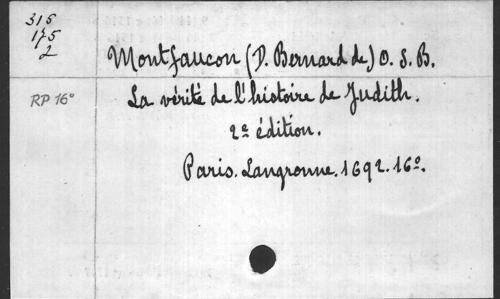 315
175
2
Montfaucon (D. Bernard de) O. S. B.
RP 16°
La vérité de l'histoire de Judith.
2e édition.
Paris. Langronne. 1692. 16°.